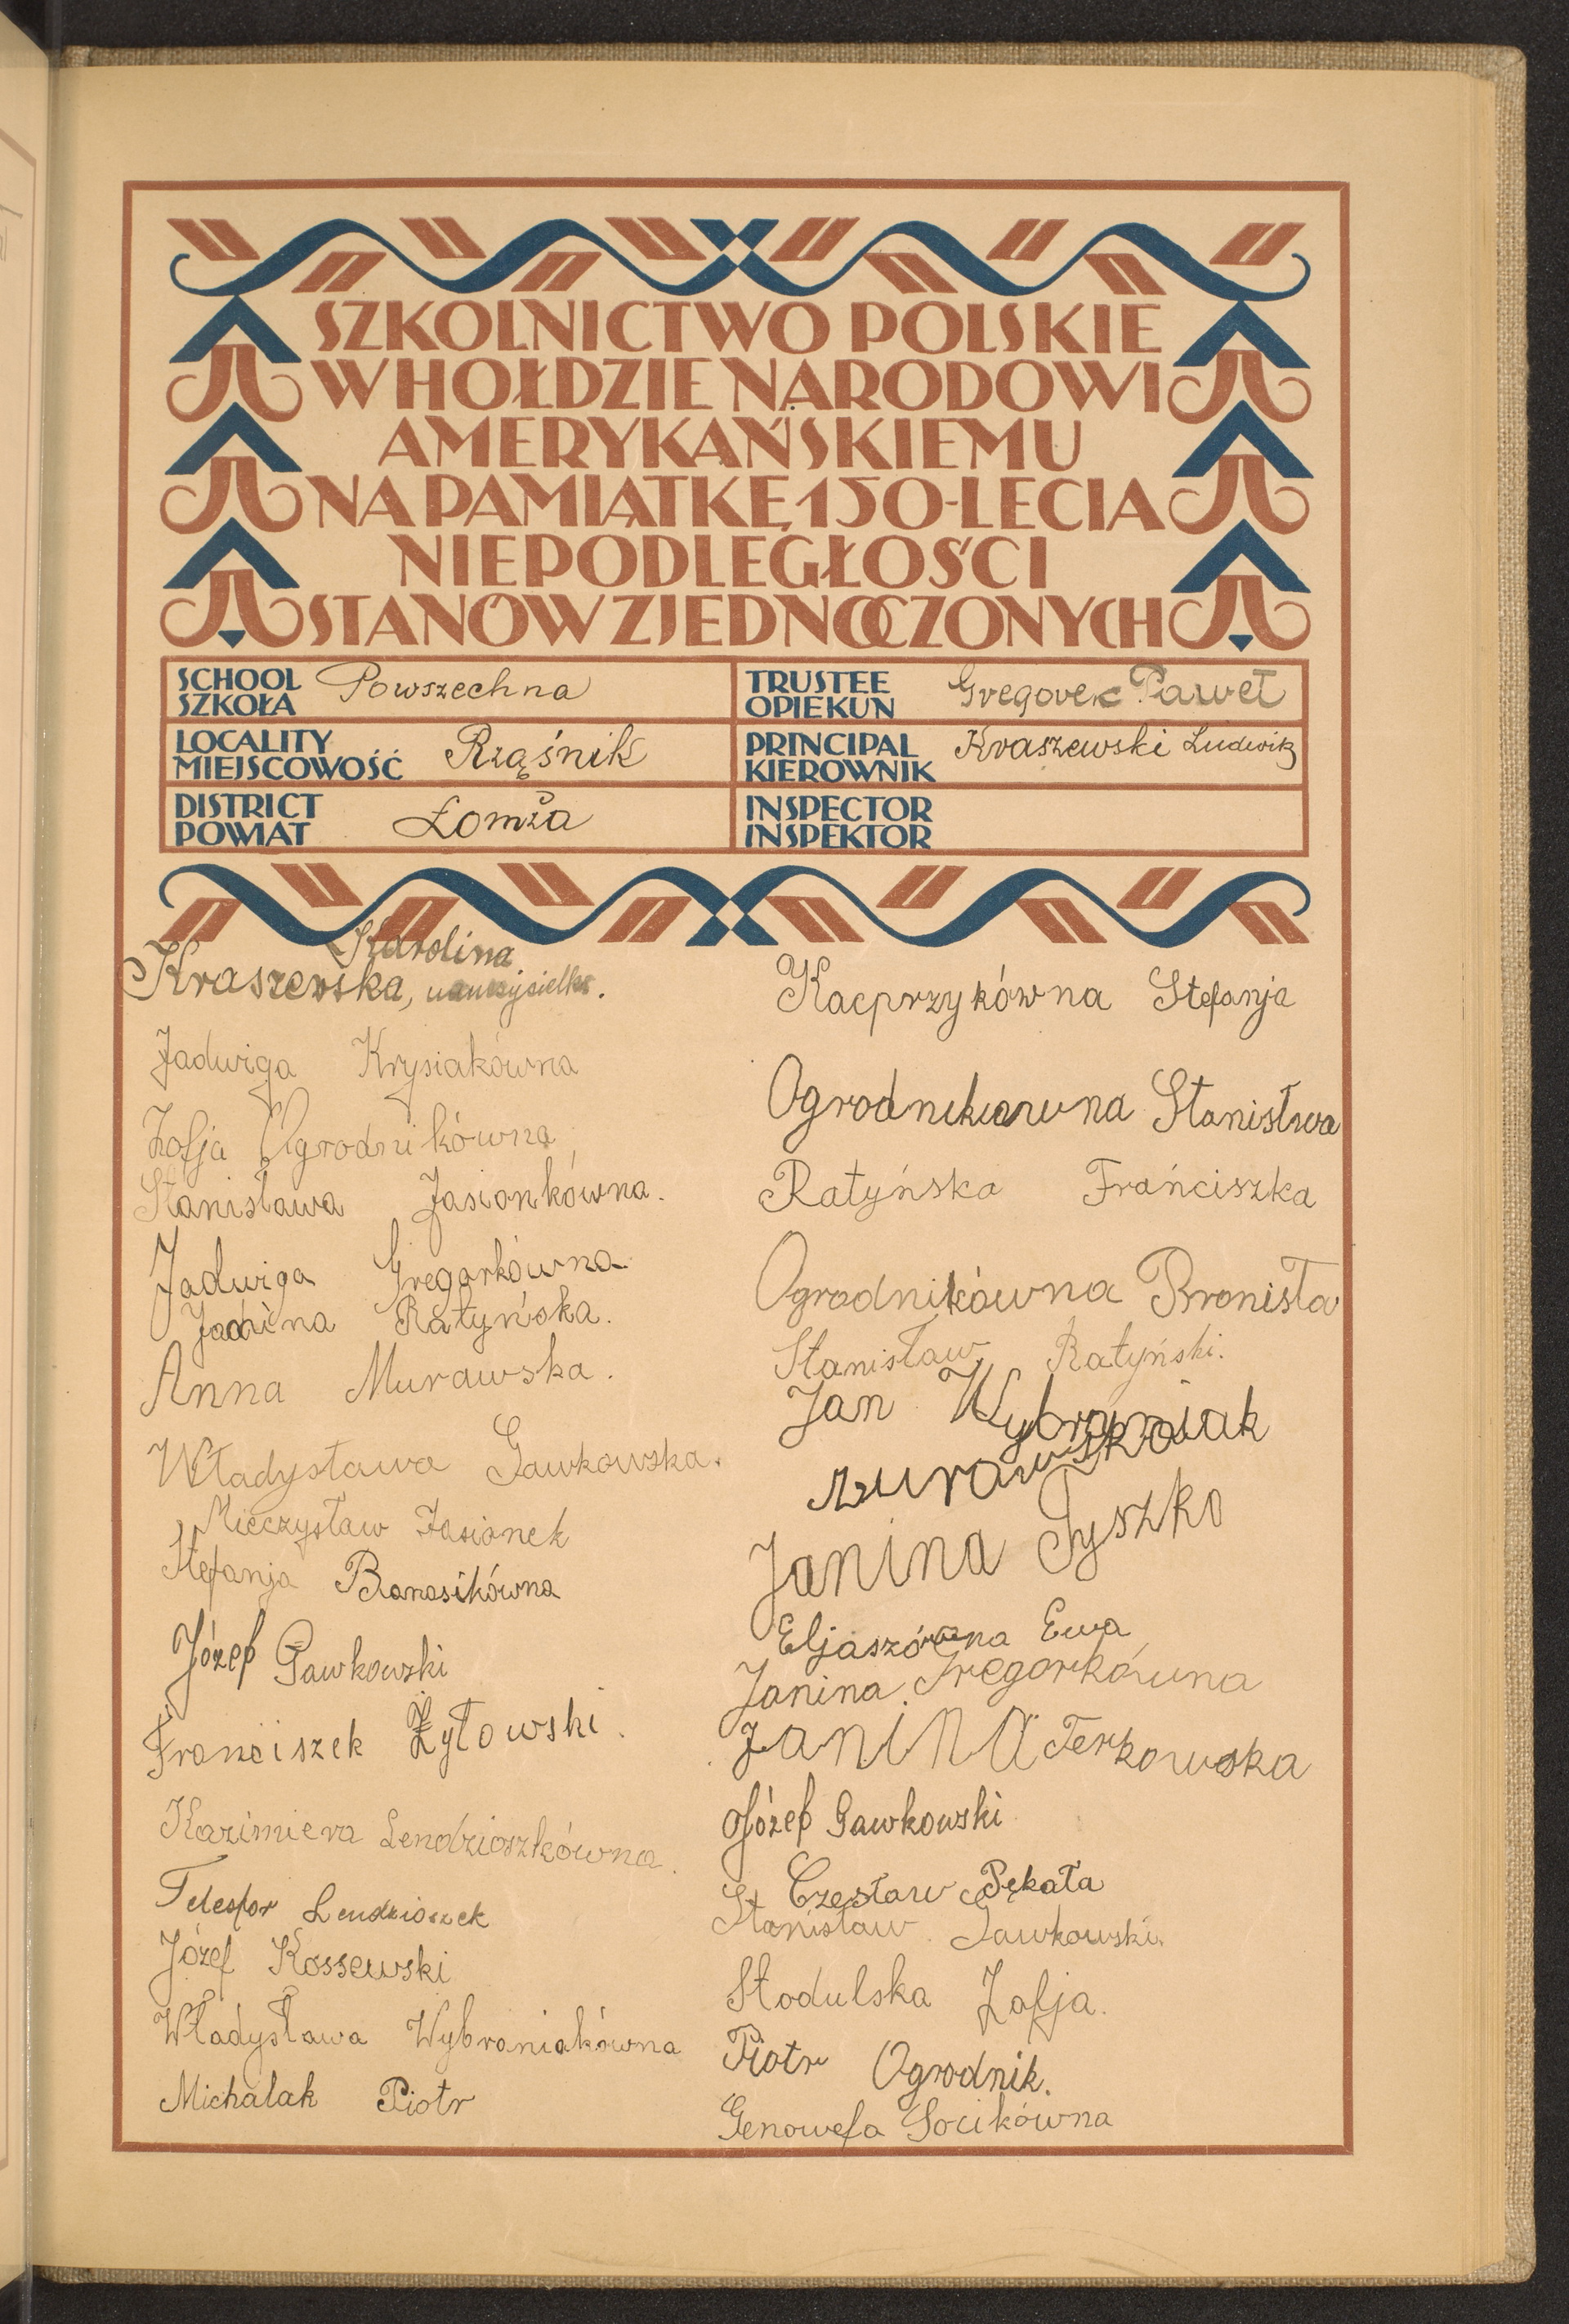 SZKOLNICTWO POLSKIE
W HOŁDZIE NARODOWI
AMERYKAŃSKIEMU
NA PAMIĄTKĘ 150-LECIA
NIEPODLEGŁOŚCI
STANÓW ZJEDNOCZONYCH
SCHOOL
SZKOŁA
Powszechna
TRUSTEE
OPIEKUN
Gregorek Paweł
LOCALITY
MIEJSCOWOŚĆ
Rząśnik
PRINCIPAL
KIEROWNIK
Kraszewski Ludwik
DISTRICT
POWIAT
Łomża
INSPECTOR
INSPEKTOR
Karolina
Kraszewska, nauczycielka.
Jadwiga Krysiakówna
Zofja Ogrodnikówna
Stanisława Jasionkówna.
Jadwiga Gregorkówna
Janina Ratyńska.
Anna Murawska.
Władysława Gawkowska.
Mieczysław Jasionek
Stefanja Banasikówna
Józef Gawkowski
Franciszek Żyłowski.
Kazimiera Lendzioszkówna.
Telesfor Lendzioszek
Józef Kossewski
Władysława Wybraniakówna
Michalak Piotr
Kacprzykówna Stefanja
Ogrodnikówna Stanisłwa
Ratyńska Frańciszka
Ogrodnikówna Bronisła
Stanisław Ratyński.
Jan Wybraniak
Janina Tyszko
Eljaszówna Ewa
Janina Gregorkówna
JaNiNa Ferkowska
Józef Gawkowski
Czesław Pękała
Stanisław Gawkowski.
Stodulska Zofja.
Piotr Ogrodnik.
Genowefa Socikówna